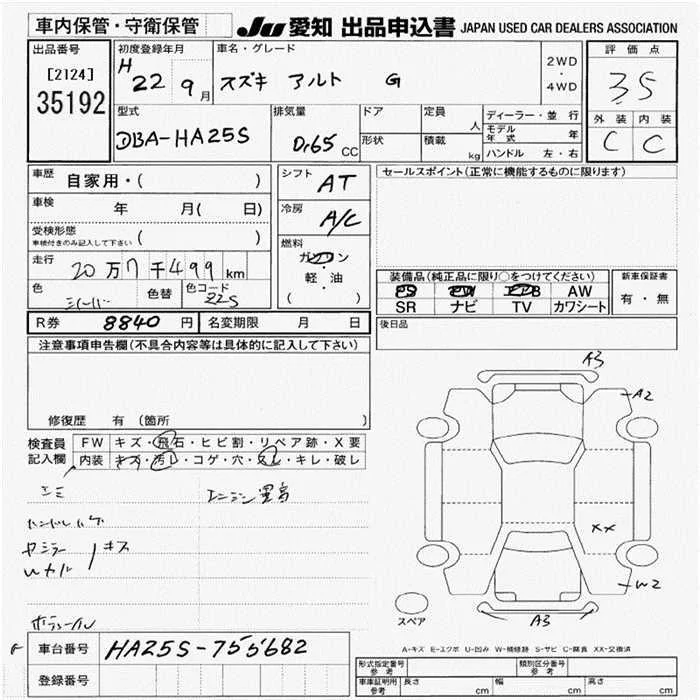 車内保管・守衛保管
JU 愛知 出品申込書 JAPAN USED CAR DEALERS ASSOCIATION
出品番号
[2124]
35192
初度登録年月
H 22 9月
車名・グレード
スズキ アルト G
2WD
・
4WD
評価点
3.5
外装 内装
C C
型式
DBA-HA25S
排気量
0.65 CC
ドア
形状
定員
人
積載
kg
ディーラー・並行
モデル年式 年
ハンドル 左・右
車歴 自家用・( )
車検 年 月( 日)
受検形態
車検付きのみ記入して下さい ( )
走行 20万7千499km
色 シルバー 色替 色コード Z2S
シフト AT
冷房 A/C
燃料
ガソリン
・
軽・油
( )
セールスポイント(正常に機能するものに限ります)
装備品(純正品に限り○をつけてください)
PS PW エアB AW
SR ナビ TV カワシート
新車保証書
有・無
R券 8840円 名変期限 月 日
後日品
注意事項申告欄(不具合内容等は具体的に記入して下さい)
修復歴 有 (箇所 )
検査員記入欄
FW キズ・飛石・ヒビ割・リペア跡・X要
内装 キズ・汚レ・コゲ・穴・スレ・キレ・破レ
エンジン異音
ハンドルハゲ
キズ
A3
A2
XX
W2
A3
スペア
A-キズ E-エクボ U-凹み W-補修跡 S-サビ C-腐食 XX-交換済
車台番号 HA25S-755682
登録番号
形式指定番号 参考
類別区分番号 参考
車庫証明用 参考 長さ cm 幅 cm 高さ cm